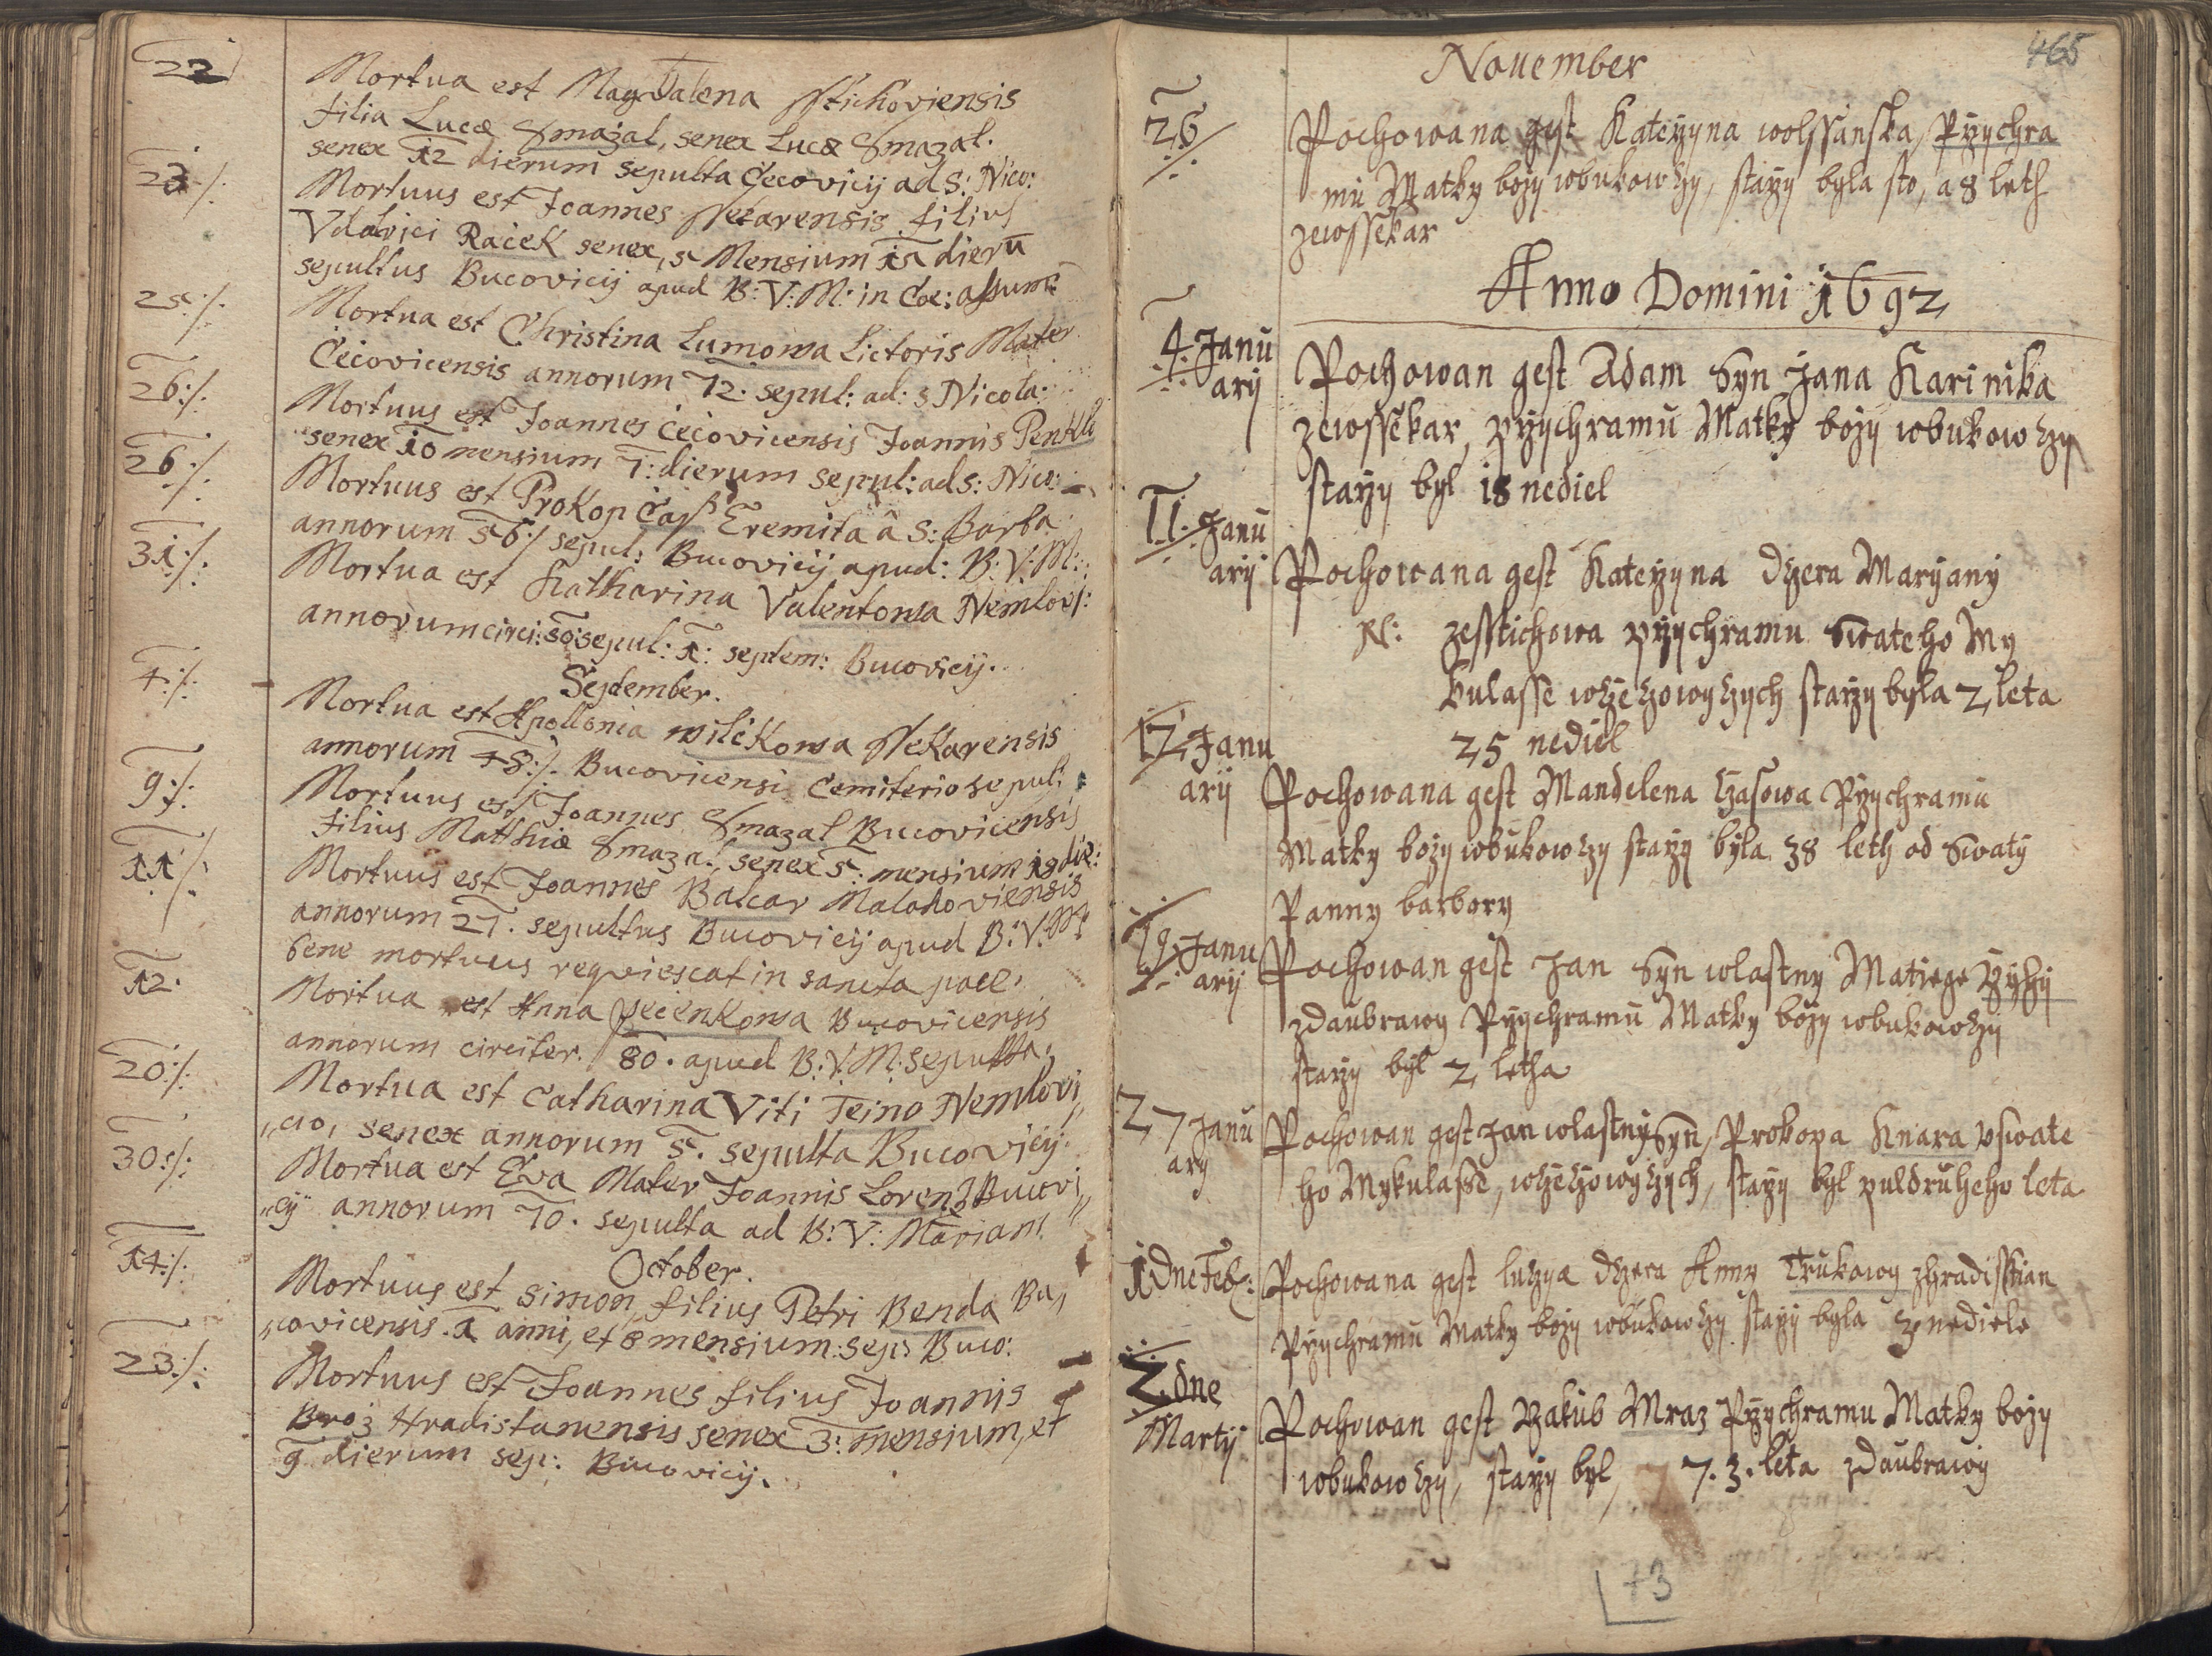 22
Mortua est MagDalena Sstichoviensis
filia Lucæ Smažal, senex Lucæ Smazal.
senex 12 dierum sepulta Čečovicij ad S: Nico:
23./.
Mortuus est Joannes Ssekarensis filius
Vdalrici Raček senex, 5 Mensium 15 dierū
sepultus Bucovicij apud B: V: M: in Coe: assum:
25./.
Mortua est Christina Lumowa Lictoris Mater
Čečovicensis annorum 72. sepul: ad: S Nicola:
26:/.
Mortuus est Joannes čečovicensis Joannis Penkle
senex 10 mensium 7: dierum sepul: ad S: Nico:
26:/.
Mortuus est Prokop Čap Eremita â S: Barba
annorum 56:/ sepul: Bucovicij apud: B: V: M:
31:/.
Mortua est Katharina Valentowa Nemlovi:
annorum circi: 50: sepul: 1: septem: Bucovicij.
September.
4:/.
Mortua est Apollonia wilčkowa Ssekarensis
annorum 48:/. Bucovicensi Cemiterio sepul:
9:/:
Mortuus est Joannes Smazal Bucovicensis
filius Matthiæ Smazal, senex 5: mensium 19 die:
11:/.
Mortuus est Joannes Balcar Malahoviensis
annorum 27. sepultus Bucovicij apud B: V: M:
bene mortuus reqviescat in sancta pace.
12.
Mortua est Anna pečenkowa Bucovicensis
annorum circiter. 80. apud B: V: M: sepulta.
20:/.
Mortua est Catharina Viti Teino Nemlovi„
„cio, senex annorum 5. sepulta Bucovicij.
30:/:
Mortua est Eva Mater Joannis Lorenz Bucovi„
„cij annorum 70. sepulta ad B: V: Mariam.
October.
14:/.
Mortuus est Simon, filius Petri Benda Bu„
„covicensis. 1 anni, et 8 mensium: sep: Buco:
23:/.
Mortuus est Joannes filius Joannis
Brož Hradistanensis senex 3: mensium, et
9 dierum sep: Bucovicij.
465
November
26/.
Pochowana gest Kateržyna wolssanska, Pržychra
mu Matky božy wbukowczy, starzy byla sto, a 8 leth
zewssekar
Anno Domini 1692
4. Janu
arij
Pochowan gest Adam Syn Jana Karinika
zewssekar, pržychramu Matky božy wbukowczy
starzy byl 18 nediel
11. Janu
arij
Pochowana gest Kateržyna dczera Maryany
zesstichowa pržychramu Swateho My
kulasse wczeczowyczych starzy byla 2 leta
25 nediel
12 Janu
arij
Pochowana gest Mandelena Czasowa Pržychramu
Matky božy wbukowczy starzy byla 38 leth od Swaty
Panny barbory
19. Janu
arij
Pochowan gest Jan Syn wlastny Matiege
zdaubrawy Pržychramu Matky božy wbukowczy
starzy byl 2 letha
27 Janu
arij
Pochowan gest Jan wlastny Syn, Prokopa Knara vswate
ho Mykulasse, wczeczowyczych, starzy byl puldruheho leta
1 Dne Feb:
Pochowana gest luczya dczera Anny Trukowy zhradisstian
Pržychramu Matky božy wbukowczy starzy byla 3 nediele
2 dne
Martij
Pochowan gest Jakub Mraz Pržychramu Matky božy
wbukowczy, starzy byl, 7.3. leta zdaubrawy
73